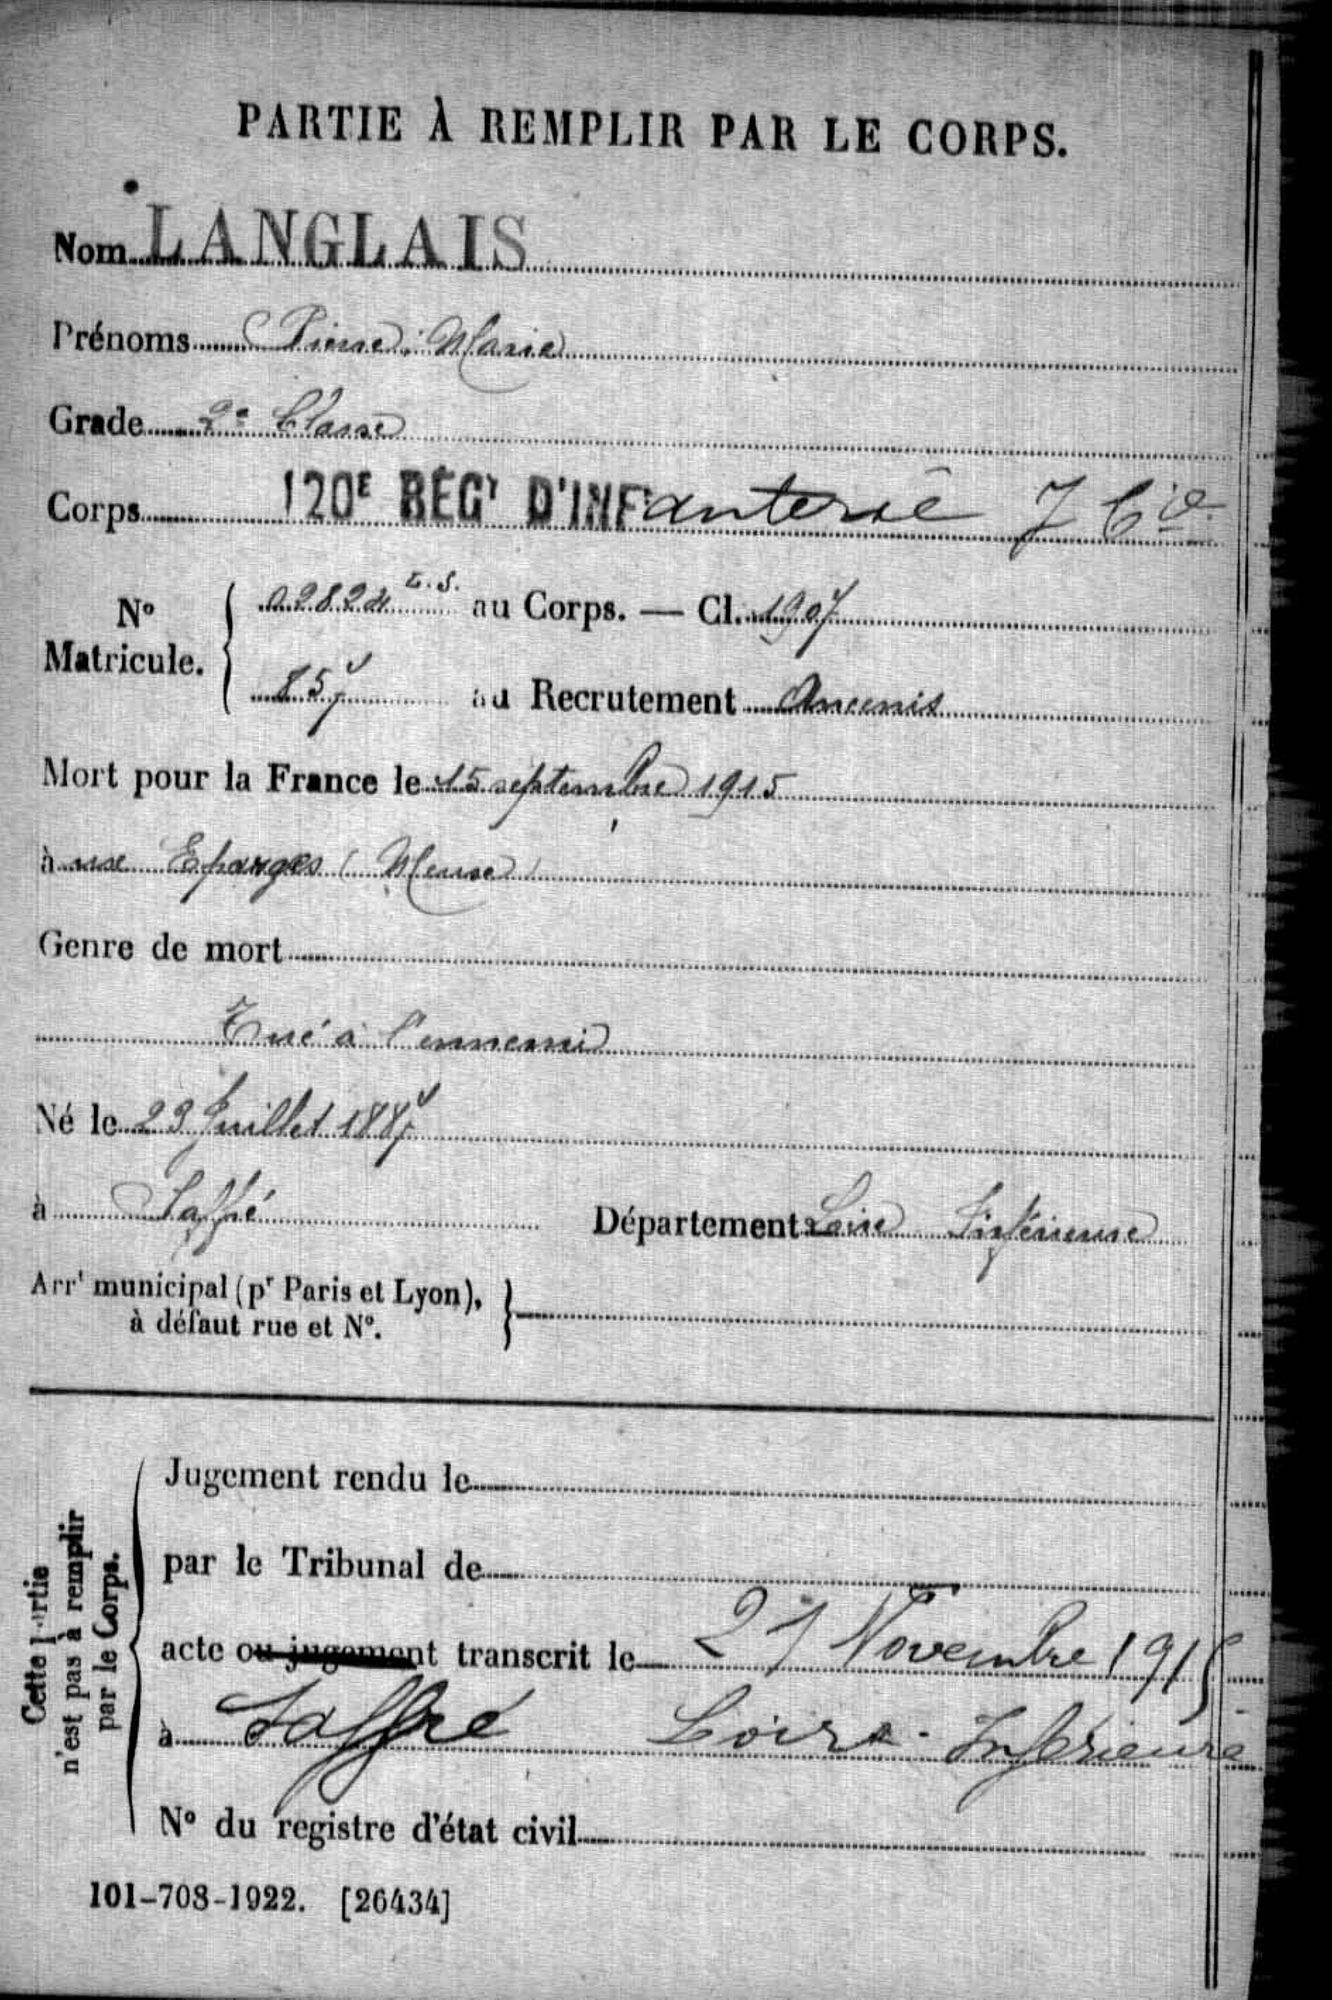 PARTIE À REMPLIR PAR LE CORPS.
Nom LANGLAIS
Prénoms Pierre Marie
Grade 2e Classe
Corps 120E RÉGT D'INFanterie 7 Cie
No Matricule. 02824 au Corps. — Cl. 1907
857 au Recrutement Ancenis
Mort pour la France le 15 septembre 1915
à aux Eparges (Meuse)
Genre de mort
Tué à l'ennemi
Né le 23 Juillet 1887
à Saffré Département Loire Inférieure
Arrt municipal (pr Paris et Lyon),
à défaut rue et No.
Cette partie n'est pas à remplir par le Corps.
Jugement rendu le
par le Tribunal de
acte ou jugement transcrit le 27 Novembre 1915
à Saffré Loire-Inférieure
No du registre d'état civil
101-708-1922. [26434]